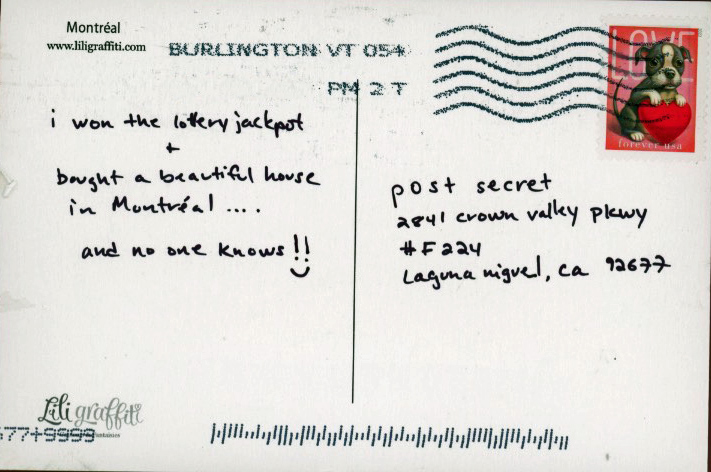 Montréal
www.liligraffiti.com
BURLINGTON VT 054
PM 2 T
LOVE
forever usa
i won the lottery jackpot
+
bought a beautiful house
in Montréal ....
and no one knows!!
post secret
2841 crown valley pkwy
#F224
Laguna niguel, ca 92677
Lili graffiti
677+9999